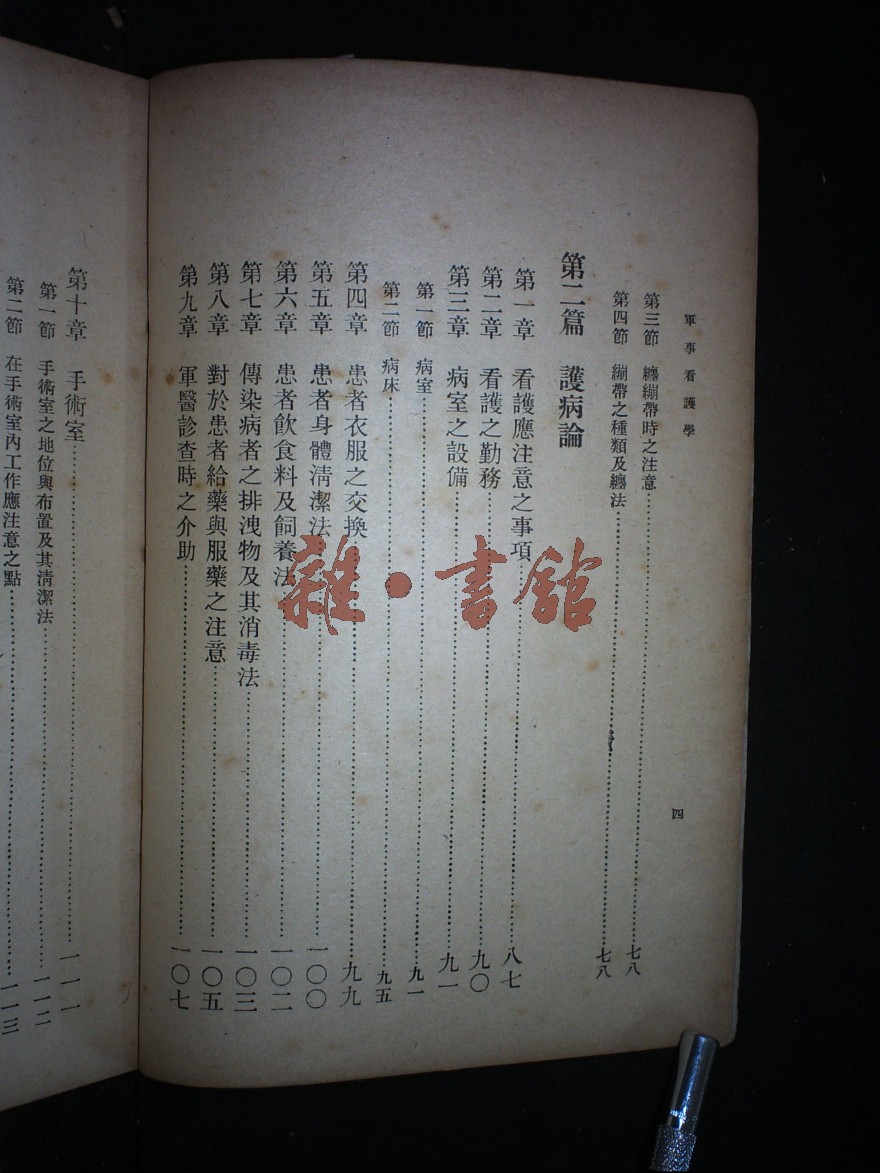 軍事看護學
四
第三節 纏繃帶時之注意……七八
第四節 繃帶之種類及纏法……七八
第二篇 護病論
第一章 看護應注意之事項……八七
第二章 看護之勤務……九〇
第三章 病室之設備……九一
第一節 病室……九一
第二節 病床……九五
第四章 患者衣服之交換……九九
第五章 患者身體清潔法……一〇〇
第六章 患者飲食料及飼養法……一〇二
第七章 傳染病者之排洩物及其消毒法……一〇三
第八章 對於患者給藥與服藥之注意……一〇五
第九章 軍醫診查時之介助……一〇七
第十章 手術室……一一一
第一節 手術室之地位與布置及其清潔法……一一二
第二節 在手術室內工作應注意之點……一一三
雜·書館